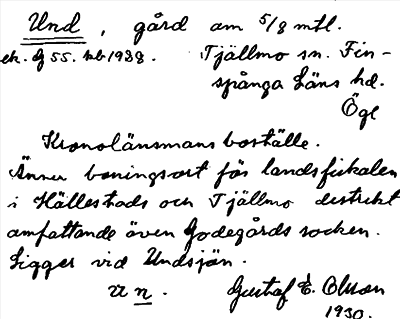 Und, gård om 5/8 mtl.
ek. bl 55. kb 1938. Tjällmo sn. Fin-
spånga Läns hd.
Ögl
Kronolänsmans boställe.
Ännu boningsort för landsfiskalen
i Hällestads och Tjällmo distrikt
omfattande även Godegårds socken.
Ligger vid Undsjön.
u n. Gustaf E. Olsson
1930.